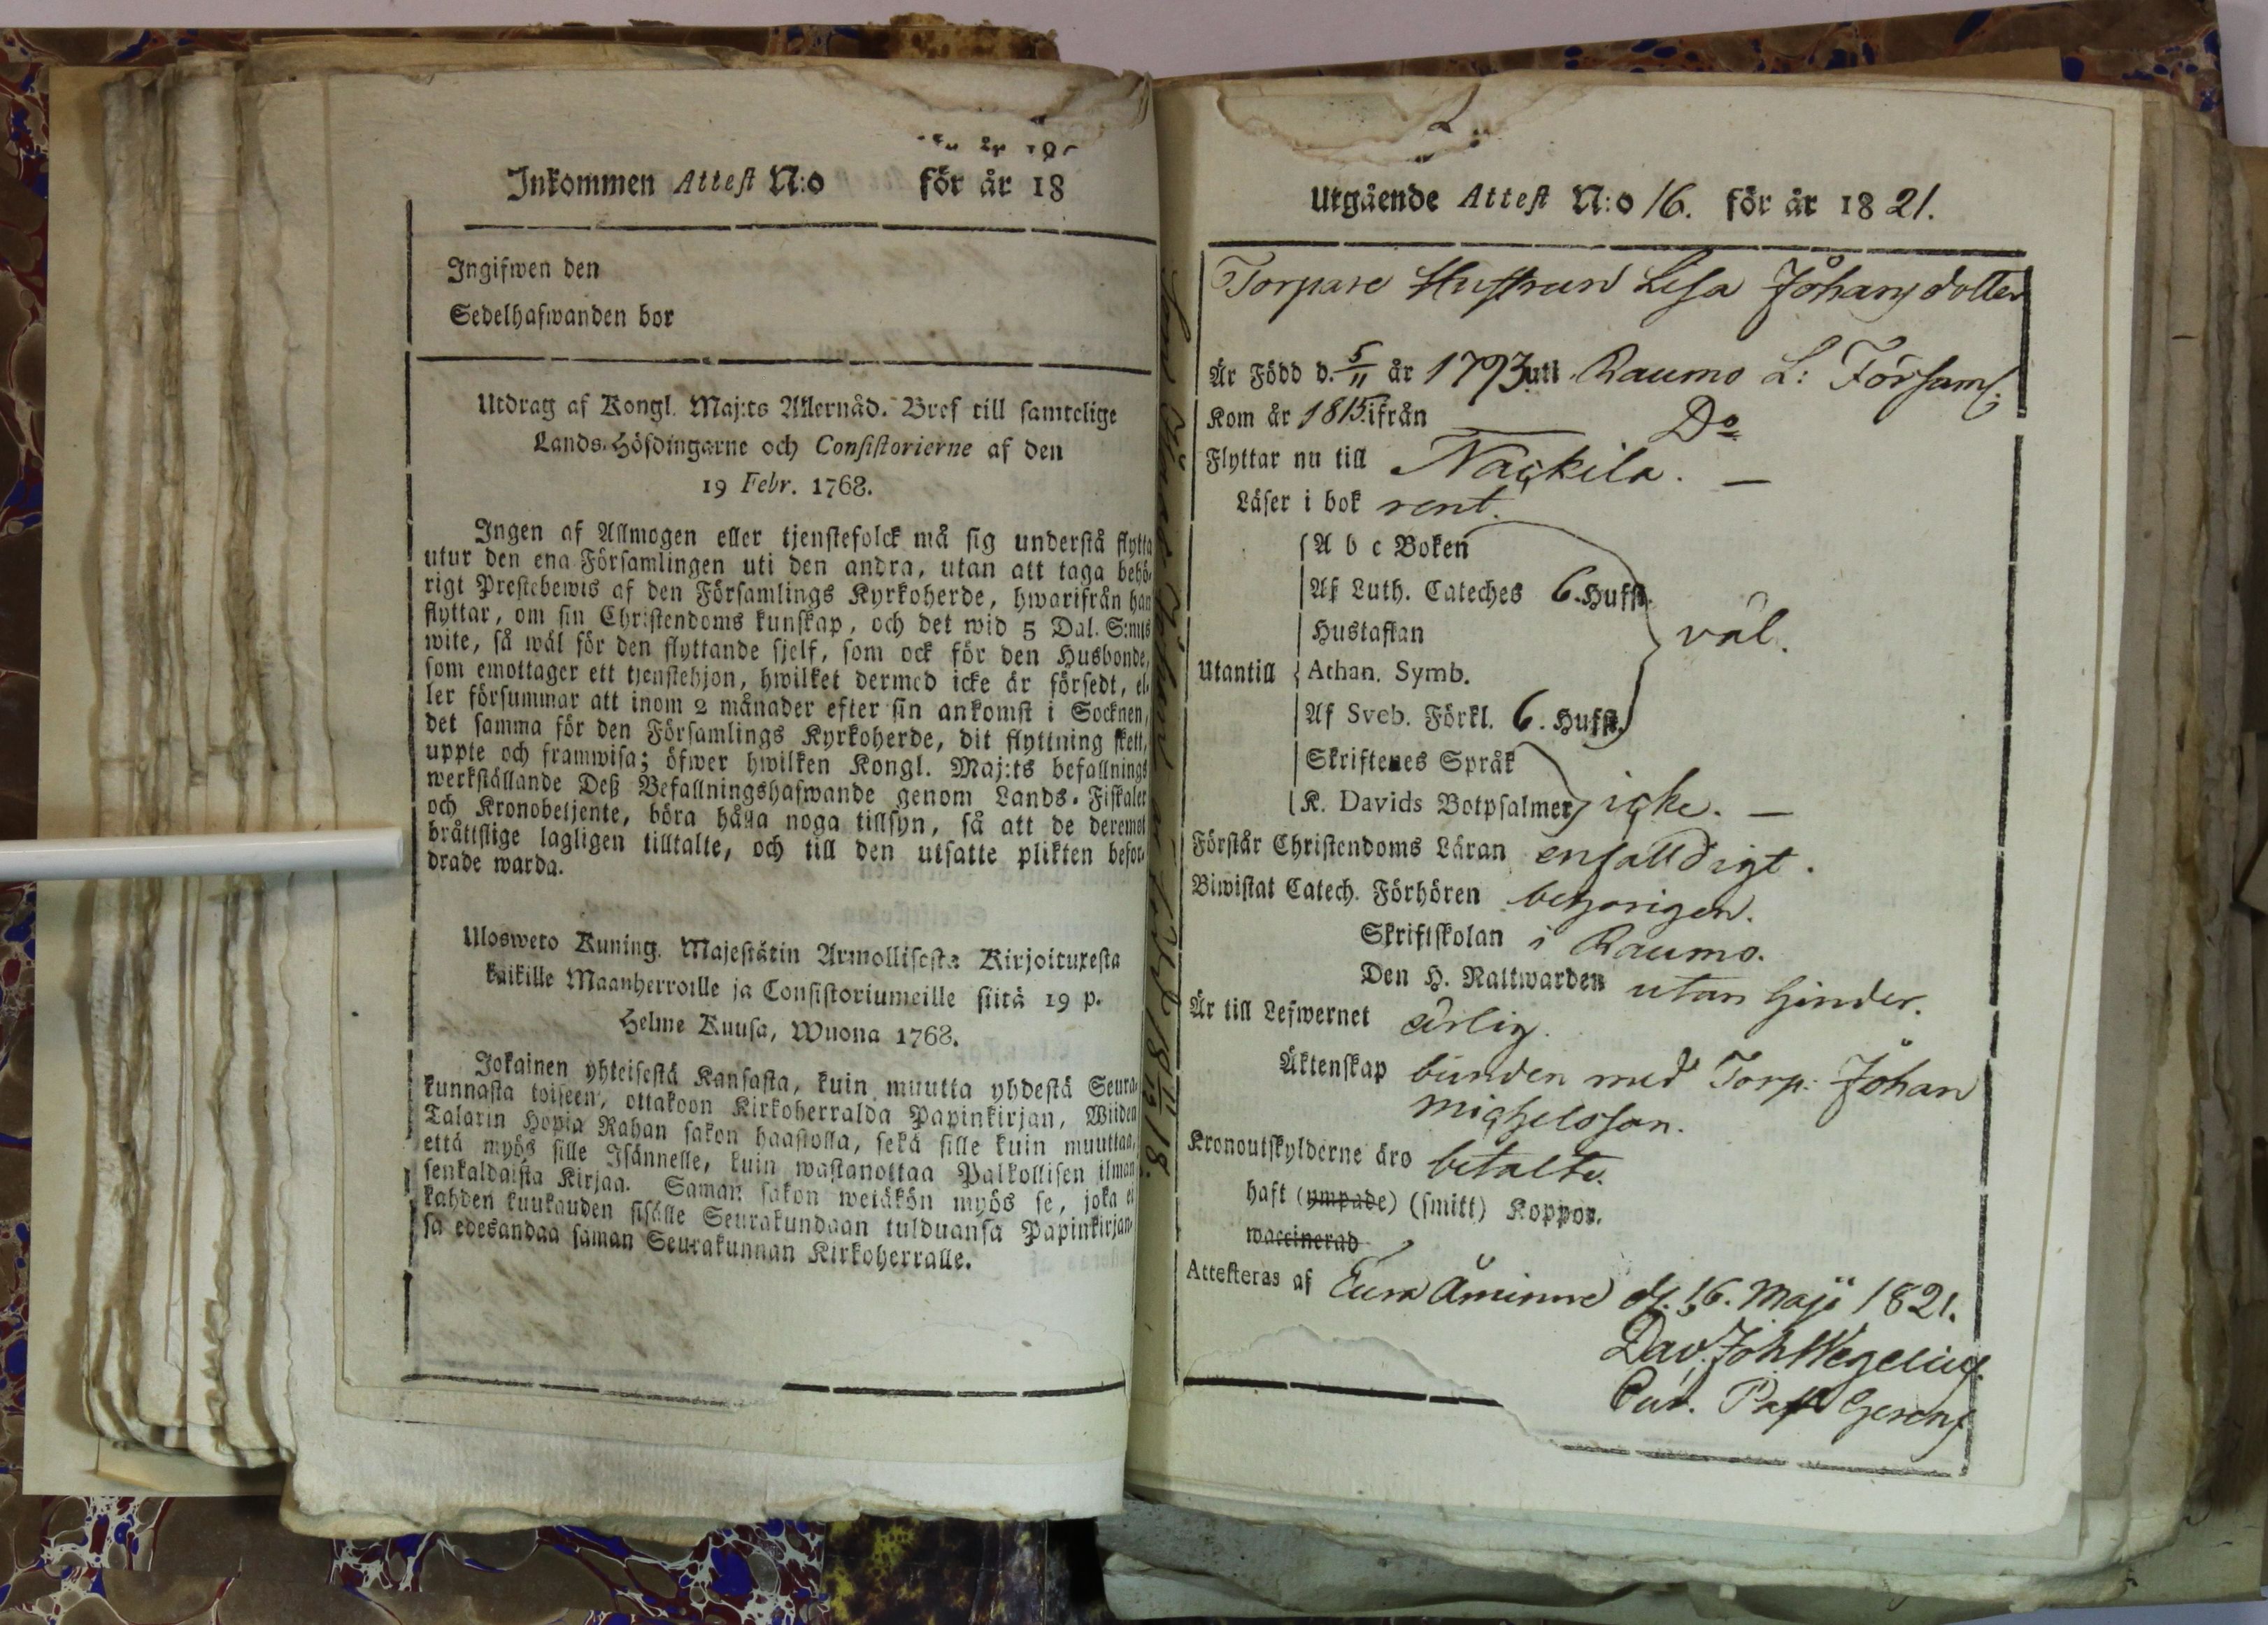 Inkommen Attest N:o för år 18
Ingifwen den
Sedelhafwanden bor
Utdrag af Kongl. Maj:ts Allernåd. Bref till samtelige
Lands-Höfdingarne och Consistorierne af den
19 Febr. 1768.
Ingen af Allmogen eller tjenstefolck må sig understå flytta
utur den ena Församlingen uti den andra, utan att taga behö-
rigt Prestebewis af den Församlings Kyrkoherde, hwarifrån han
flyttar, om sin Christendoms kunskap, och det wid 5 Dal. S:mts
wite, så wäl för den flyttande sjelf, som ock för den Husbonde,
som emottager ett tjenstehjon, hwilket dermed icke är försedt, el-
ler försummar att inom 2 månader efter sin ankomst i Socknen,
det samma för den Församlings Kyrkoherde, dit flyttning skett,
uppte och framwisa; öfwer hwilken Kongl. Maj:ts befallnings
werkställande Deß Befallningshafwande genom Lands-Fiskaler
och Kronobetjente, böra hålla noga tillsyn, så att de deremot
bråttslige lagligen tilltalte, och till den utsatte plikten befor-
drade warda.
Ulosweto Kuning. Majestätin Armollisesta Kirjoituxesta
kaikille Maanherroille ja Consistoriumeille siitä 19 p.
Helme Kuusa, Wuona 1768.
Jokainen yhteisestä Kansasta, kuin muutta yhdestä Seura-
kunnasta toiseen, ottakoon Kirkoherralda Papinkirjan, Wiiden
Talarin Hopia Rahan sakon haastolla, sekä sille kuin muuttaa,
että myös sille Isännelle, kuin wastanottaa Palkollisen ilman
senkaldaista Kirjaa. Saman sakon wetäkön myös se, joka ei
kahden kuukauden sisälle Seurakundaan tulduansa Papinkirjan-
sa edesandaa saman Seurakunnan Kirkoherralle.
Utgående Attest N:o 16. för år 1821.
Torpare Hustrun Lisa Johansdotter
Är Född d. 5/11 år 1793 uti Raumo L: Församl:
Kom år 1815 ifrån Do
Flyttar nu till Nackila. —
Läser i bok rent.
A b c Boken
Af Luth. Cateches 6. Hufst.
Hustaflan wäl.
Utantill Athan. Symb.
Af Sveb. Förkl. 6. Hufst.
Skriftenes Språk
K. Davids Botpsalmer icke. —
Förstår Christendoms Läran enfalldigt.
Biwistat Catech. Förhören behörigen.
Skriftskolan i Raumo.
Den H. Nattwarden utan hinder.
Är till Lefwernet ärlig.
Äktenskap bunden med Torp: Johan
Michelsson.
Kronoutskylderne äro betalte.
haft (ympade) (smitt) Koppor.
waccinerad
Attesteras af Eura Åminne d. 16. Maji 1821.
Dav. Joh Wegelius.
Cur. Past Gerens